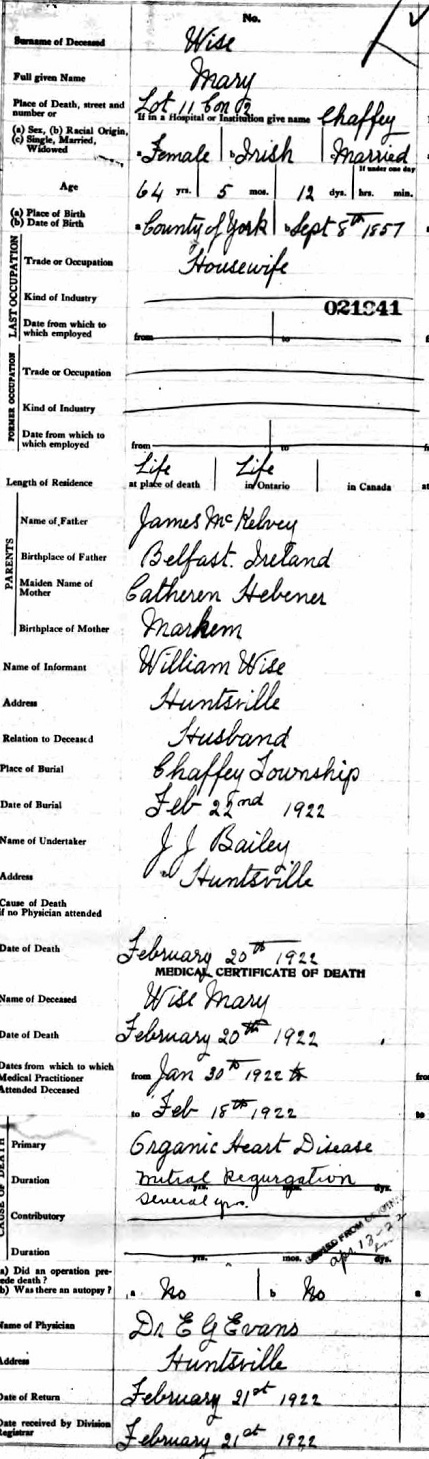 No.
Surname of Deceased Wise
Full given Name Mary
Place of Death, street and Lot 11 Con 12
number or If in a Hospital or Institution give name Chaffey
(a) Sex, (b) Racial Origin,
(c) Single, Married,
Widowed a Female b Irish Married
If under one day
Age 64 yrs. 5 mos. 12 dys. hrs. min.
(a) Place of Birth
(b) Date of Birth a County of York b Sept 8th 1857
LAST OCCUPATION
Trade or Occupation Housewife
Kind of Industry
021941
Date from which to
which employed from to
FORMER OCCUPATION
Trade or Occupation
Kind of Industry
Date from which to
which employed from to
Life Life
Length of Residence at place of death in Ontario in Canada
PARENTS
Name of Father James McKelvey
Birthplace of Father Belfast. Ireland
Maiden Name of
Mother Catheren Hebener
Birthplace of Mother Markem
Name of Informant William Wise
Address Huntsville
Relation to Deceased Husband
Place of Burial Chaffey Township
Date of Burial Feb 22nd 1922
Name of Undertaker J J Bailey
Address Huntsville
Cause of Death
if no Physician attended
Date of Death February 20th 1922
MEDICAL CERTIFICATE OF DEATH
Name of Deceased Wise Mary
Date of Death February 20th 1922
Dates from which to which from Jan 30th 1922
Medical Practitioner
Attended Deceased to Feb 18th 1922
CAUSE OF DEATH
Primary Organic Heart Disease
Duration Mitral Regurgation
yrs. mos. dys.
Several yrs.
Contributory
Duration yrs. mos. dys.
a) Did an operation pre-
ede death?
b) Was there an autopsy? a No b No
Name of Physician Dr E G Evans
Address Huntsville
Date of Return February 21st 1922
Date received by Division
Registrar February 21st 1922